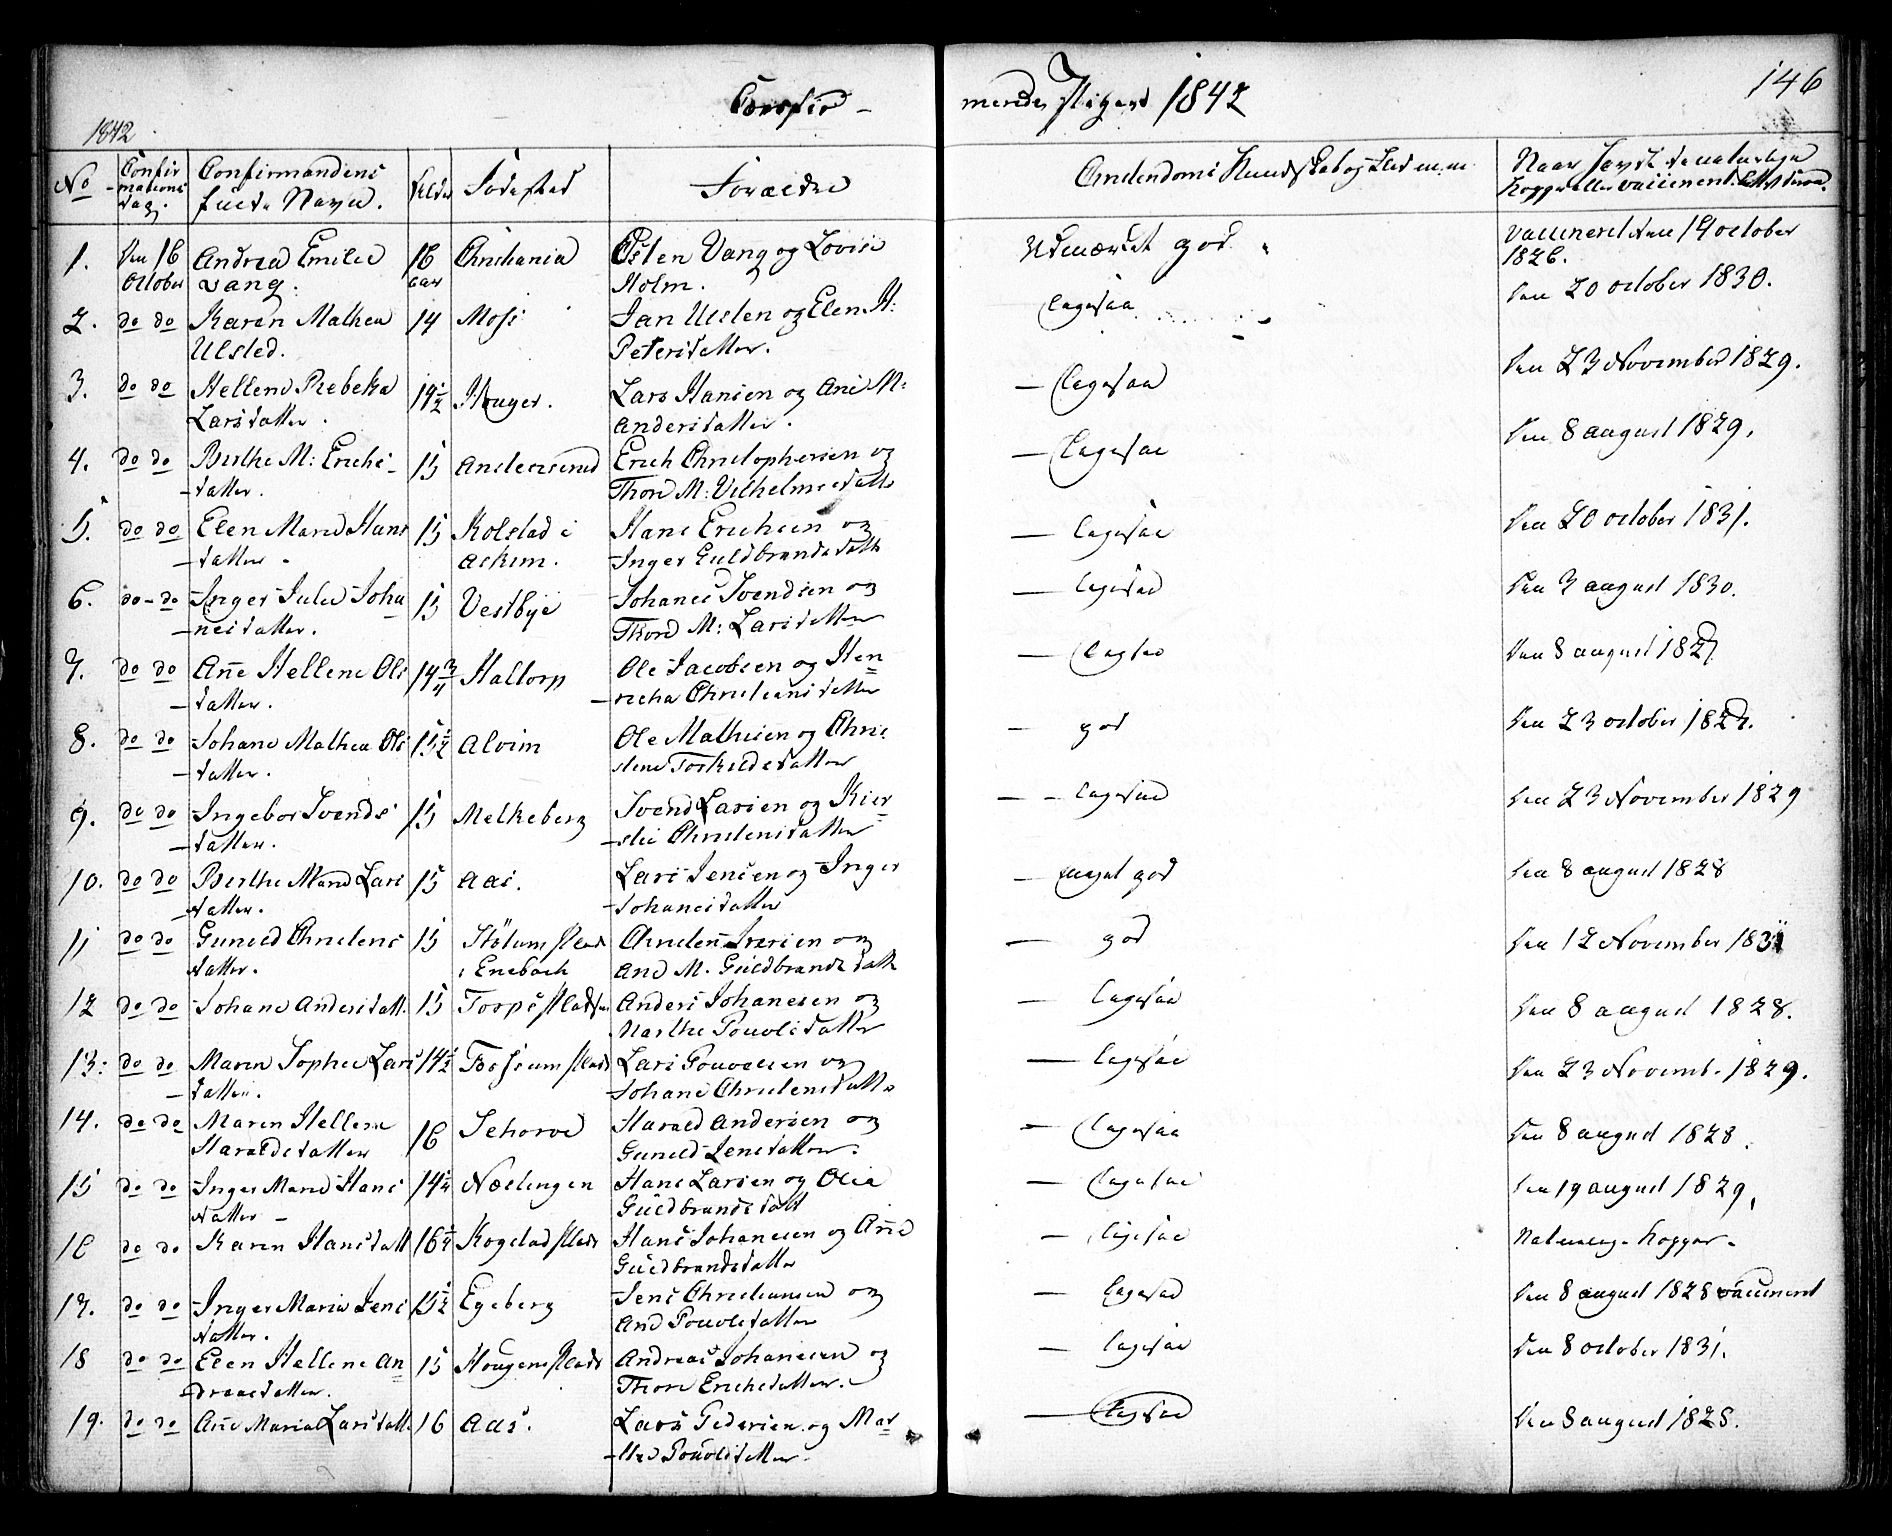 Confir- mender Piger 1842
146
1842
No
Confirmations dag.
Confirmandens fulde Navn.
Alder
Fødested
Forældre
Christendoms Kundskab og Flid m.m.
Naar havdt de naturlige Kopper eller vaccineret
1. Den 16 October Andrea Emilie Vang. 16 aar Christiania Østen Vang og Lovise Holm. Udmærket god. vaccineret den 19 october 1826.
2. do do Karen Mathea Ulsted. 14 Moss Jan Ulsten og Elen H: Petersdatter. Ligesaa den 20 october 1830.
3. do do Hellene Rebeka Larsdatter. 14½ Houger. Lars Hansen og Ane M: Andersdatter. — Ligesaa den 23 November 1829.
4. do do Berthe M: Erichs-datter. 15 Anderserud Erich Christophersen og Thore M: Vilhelmsdatt — Ligesaa Den 8 august 1829.
5. do do Elen Marie Hans-datter 15 Kolstad i Askim. Hans Erichsen og Inger Guldbrandsdatt — Ligesaa den 20 october 1831.
6. do-do Inger Julie Johanesdatter. 15 Vestbÿe Johanes Svendsen og Thore M: Larsdatter — ligesaa Den 3 august 1830.
7. do do Añe Hellene Ols-datter. 14¾ Haltorp Ole Jacobsen og Henricha Christiansdatter — Ligesaa Den 8 august 1827
8. do do Johane Mathea Ols-datter. 15½ Alvim Ole Mathisen og Christene Torkildsdatter — god Den 23 october 1827.
9. do do Ingebor Svends-datter. 15 Melkeberg Svend Larsen og Kierstie Christensdatter — ligesaa den 23 November 1829
10. do do Berthe Marie Lars-datter. 15 Aas. Lars Jensen og Inger Johanesdatter — meget god den 8 august 1828
11 do do Guneld Christens datter. 15 Stölum plads i Enebach Christen Iversen og Ane M. Guldbrandsdatt — god Den 12 November 1831
12 do do Johane Andersdatt. 15 Torpspladsen Anders Johanesen og Marthe Pouvelsdatter — ligesaa Den 8 august 1828.
13: do do Maren Sophie Lars-datter. 14½ Fossum plads Lars Pouvelsen og Johane Christensdatt — ligesaa den 23 Novemb. 1829.
14. do do Maren Hellene Haraldsdatter 16 Sehorve Harald Andersen og Guneld Jensdatter. — Ligesaa Den 8 august 1828.
15 do do Inger Marie Hans datter 14¼ Næslingen Hans Larsen og Olea Guldbrandsdatt — Ligesaa den 19 august 1829.
16 do do Karen Hansdatt 16½ Kogstad plads Hans Johanesen og Añe Guldbrandsdatter — ligesaa Naturlig-Kopper.
17. do do Inger Maria Jens datter. 15½ Egeberg Jens Christiansen og Ane Pouvelsdatter — ligesaa Den 8 august 1828 vaccineret
18 do do Elen Hellene Andreasdatter. 15 Hougens plads Andreas Johanesen og Thore Erichsdatter. — ligesaa Den 8 october 1831.
19. do do Añe Maria Larsdatt. 16 Aas. Lars Pedersen og Marthe Pouvelsdatter. — Ligesaa Den 8 august 1828.